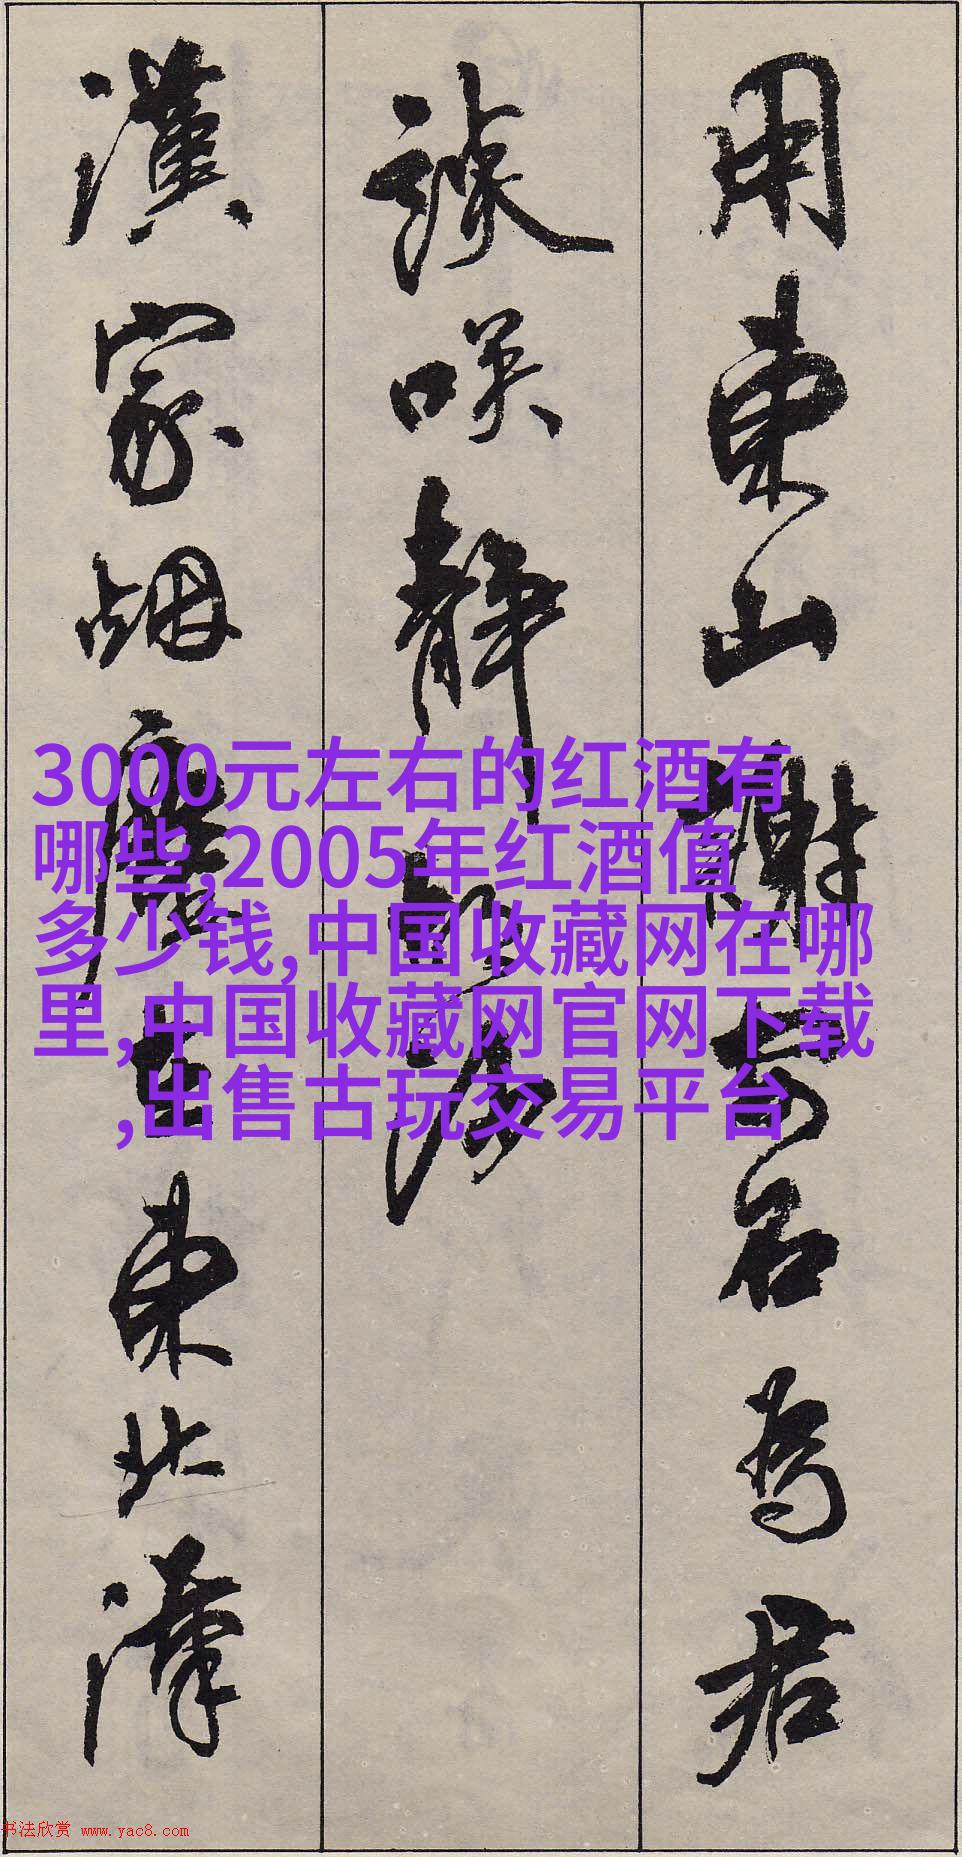 用東山謝安石為君
談咲静胡沙
漢家烟塵在東北漢
3000元左右的红酒有
哪些,2005年红酒值
多少钱,中国收藏网在哪
里,中国收藏网官网下载
,出售古玩交易平台
书法欣赏 www.yac8.com